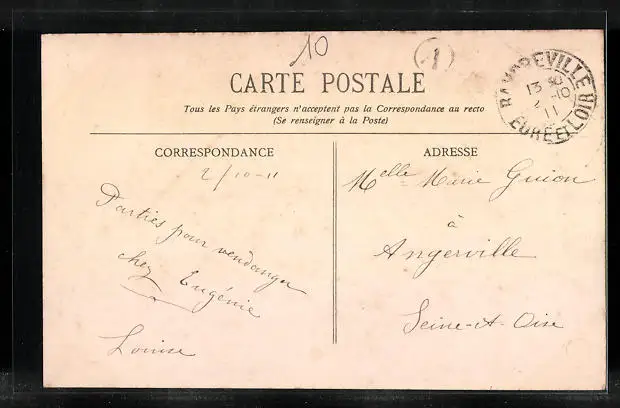 10
1
CARTE POSTALE
Tous les Pays étrangers n'acceptent pas la Correspondance au recto
(Se renseigner à la Poste)
BAUDREVILLE
13 30
2 -10
11
EURE ET LOIR
CORRESPONDANCE
2/10-11
Parties pour vendanger
chez Eugénie
Louise
ADRESSE
Melle Marie Guion
à
Angerville
Seine-et-Oise